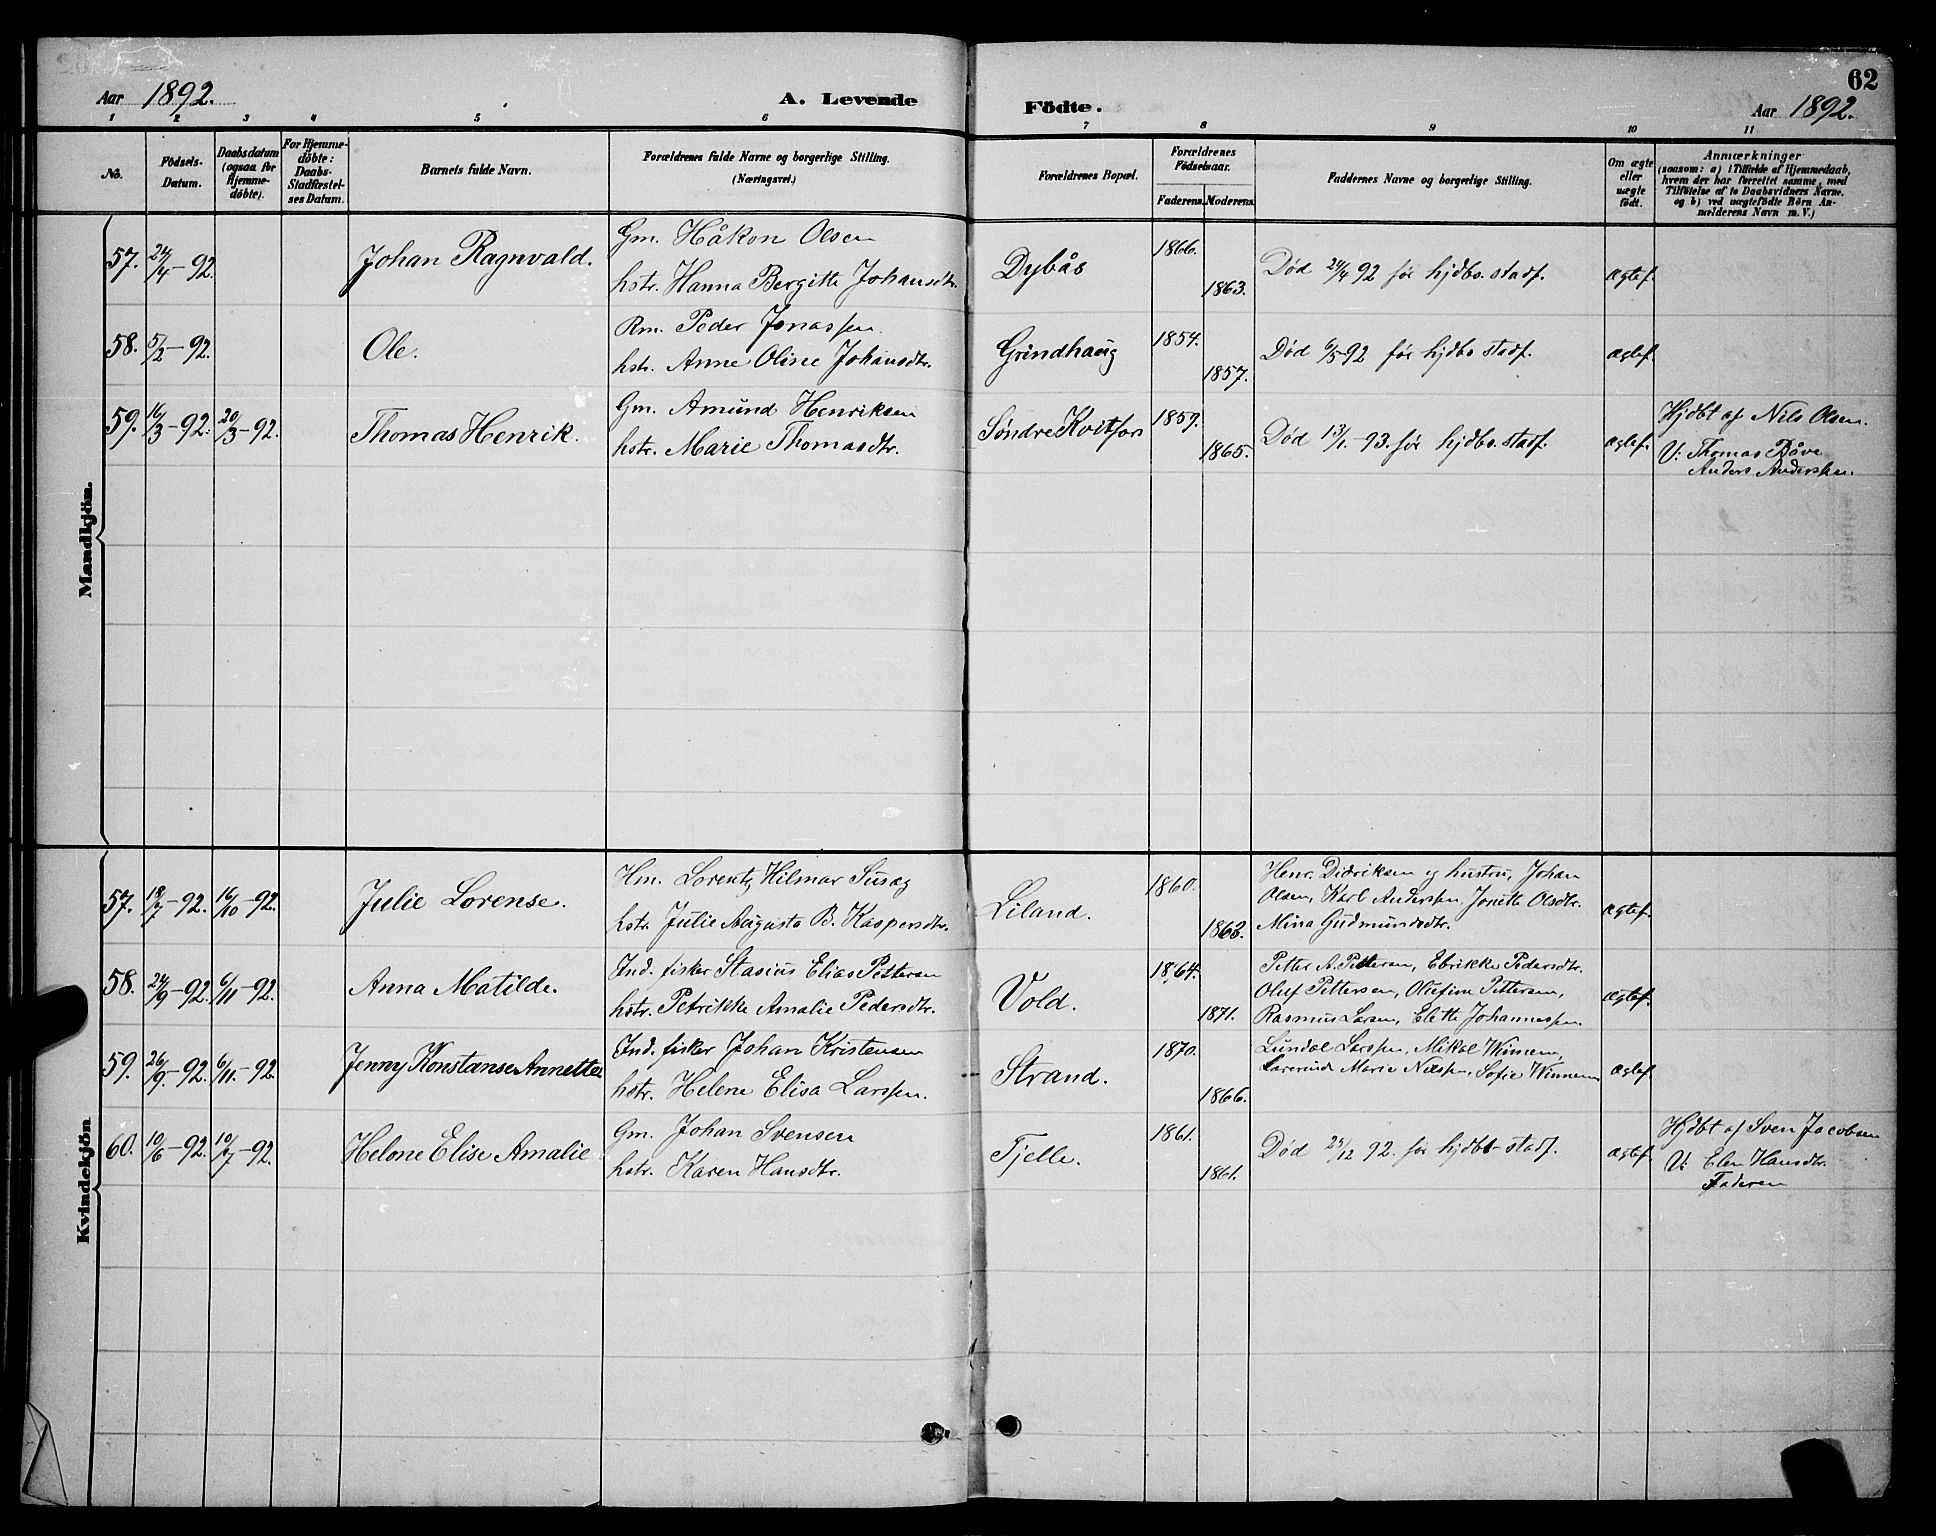 62
Aar 1892. A. Levende Födte. Aar 1892.
1 2 3 4 5 6 7 8 9 10 11
No.
Födsels-
Datum.
Daabsdatum
(ogsaa for
Hjemme-
döbte).
For Hjemme-
döbte:
Daabs-
Stadfæstel-
ses Datum.
Barnets fulde Navn.
Forældrenes fulde Navne og borgerlige Stilling.
(Næringsvei.)
Forældrenes Bopæl.
Forældrenes
Födselsaar.
Faderens. Moderens.
Faddernes Navne og borgerlige Stilling.
Om ægte
eller
uægte
födt.
Anmærkninger
(saasom: a) i Tilfælde af Hjemmedaab,
hvem der har forrettet samme, med
Tilföielse af to Daabsvidners Navne,
og b) ved uægtefödte Börn An-
mælderens Navn m. V.)
Mandkjön.
57. 24/4-92. Johan Ragnvald.
Gm. Håkon Olsen
hstr. Hanna Bergitte Johansdtr.
Dybås 1866. 1863. Død 24/4 92 før hjdbs. stadf. ægtef.
58. 5/2-92. Ole.
Rm. Peder Jonassen.
hstr. Anne Oline Johansdtr.
Grindhaug 1854. 1857. Død 6/5 92 før hjdbs stadf. ægtef.
59. 16/3-92. 20/3-92. Thomas Henrik.
Gm. Amund Henriksen
hstr. Marie Thomasdtr.
Søndre Kvitfors 1859. 1865. Død 13/1-93. før hjdbs. stadf. ægtef.
Hjdbt af Nils Olsen.
V: Thomas Båve
Anders Anderssen.
Kvindekjön
57. 18/7-92. 16/10-92. Julie Lorense.
Hm. Lorentz Hilmar Susæg
hstr. Julie Augusta B. Kaspersdtr.
Liland. 1860. 1863.
Henr. Didriksen og hustru, Johan
Olsen, Karl Anderssen Jonette Olsdtr.
Mina Gudmundsdtr.
ægtef.
58. 24/9-92. 6/11-92. Anna Matilde.
Ind. fisker Stasius Elias Pettersen
hstr. Petrikke Amalie Pedersdtr.
Vold. 1864. 1871.
Petter A. Pettersen, Ebrikke Pedersdtr.
Oluf Pettersen, Olufine Pettersen,
Rasmus Larsen, Elette Johannessen.
ægtef.
59. 26/9-92. 6/11-92. Jenny Konstanse Annette
Ind. fisker Johan Kristensen
hstr. Helene Elisa Larssen.
Strand. 1870. 1866.
Larssen, Mikal Winnem,
Marie Sofie Winnem
ægtef.
60. 10/6-92. 10/7-92. Helene Elise Amalie
Gm. Johan Svensen
hstr. Karen Hansdtr.
Tjelle. 1861. 1861. Død 25/12 92. før hjdbs-stadf. ægtef.
Hjdbt af Sven Jacobsen
V: Elen Hansdtr.
Faderen